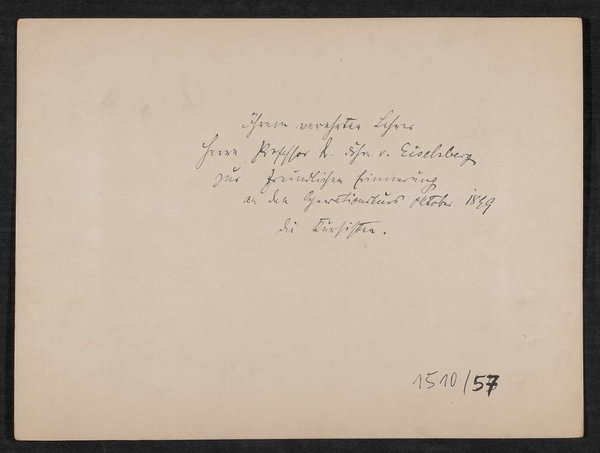 Ihrem verehrten Lehrer
Herrn Professor Dr. Frhr v. Eiselsberg
zur freundlichen Erinnerung
an den Operationskurs Oktober 1899
die Kursisten.
1510/57